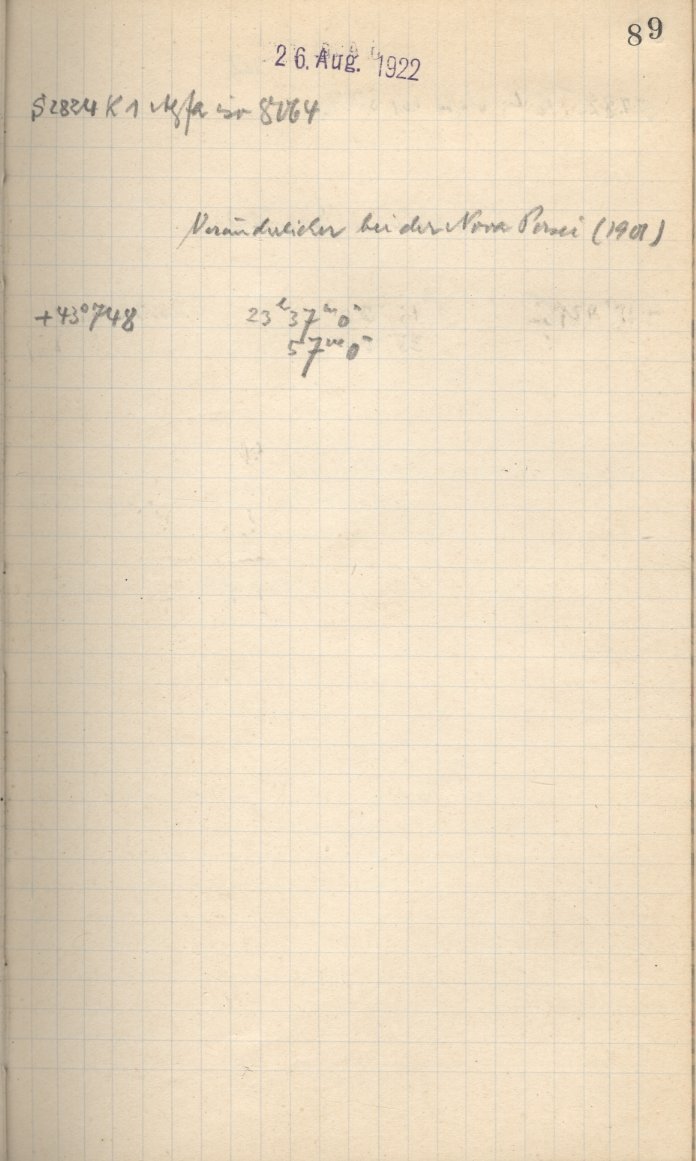 89
26. Aug. 1922
S 2824 K 1 Agfa iso 8064
Veränderlicher bei der Nova Persei (1901)
+43°748 23h 37m 0s
57m 0s